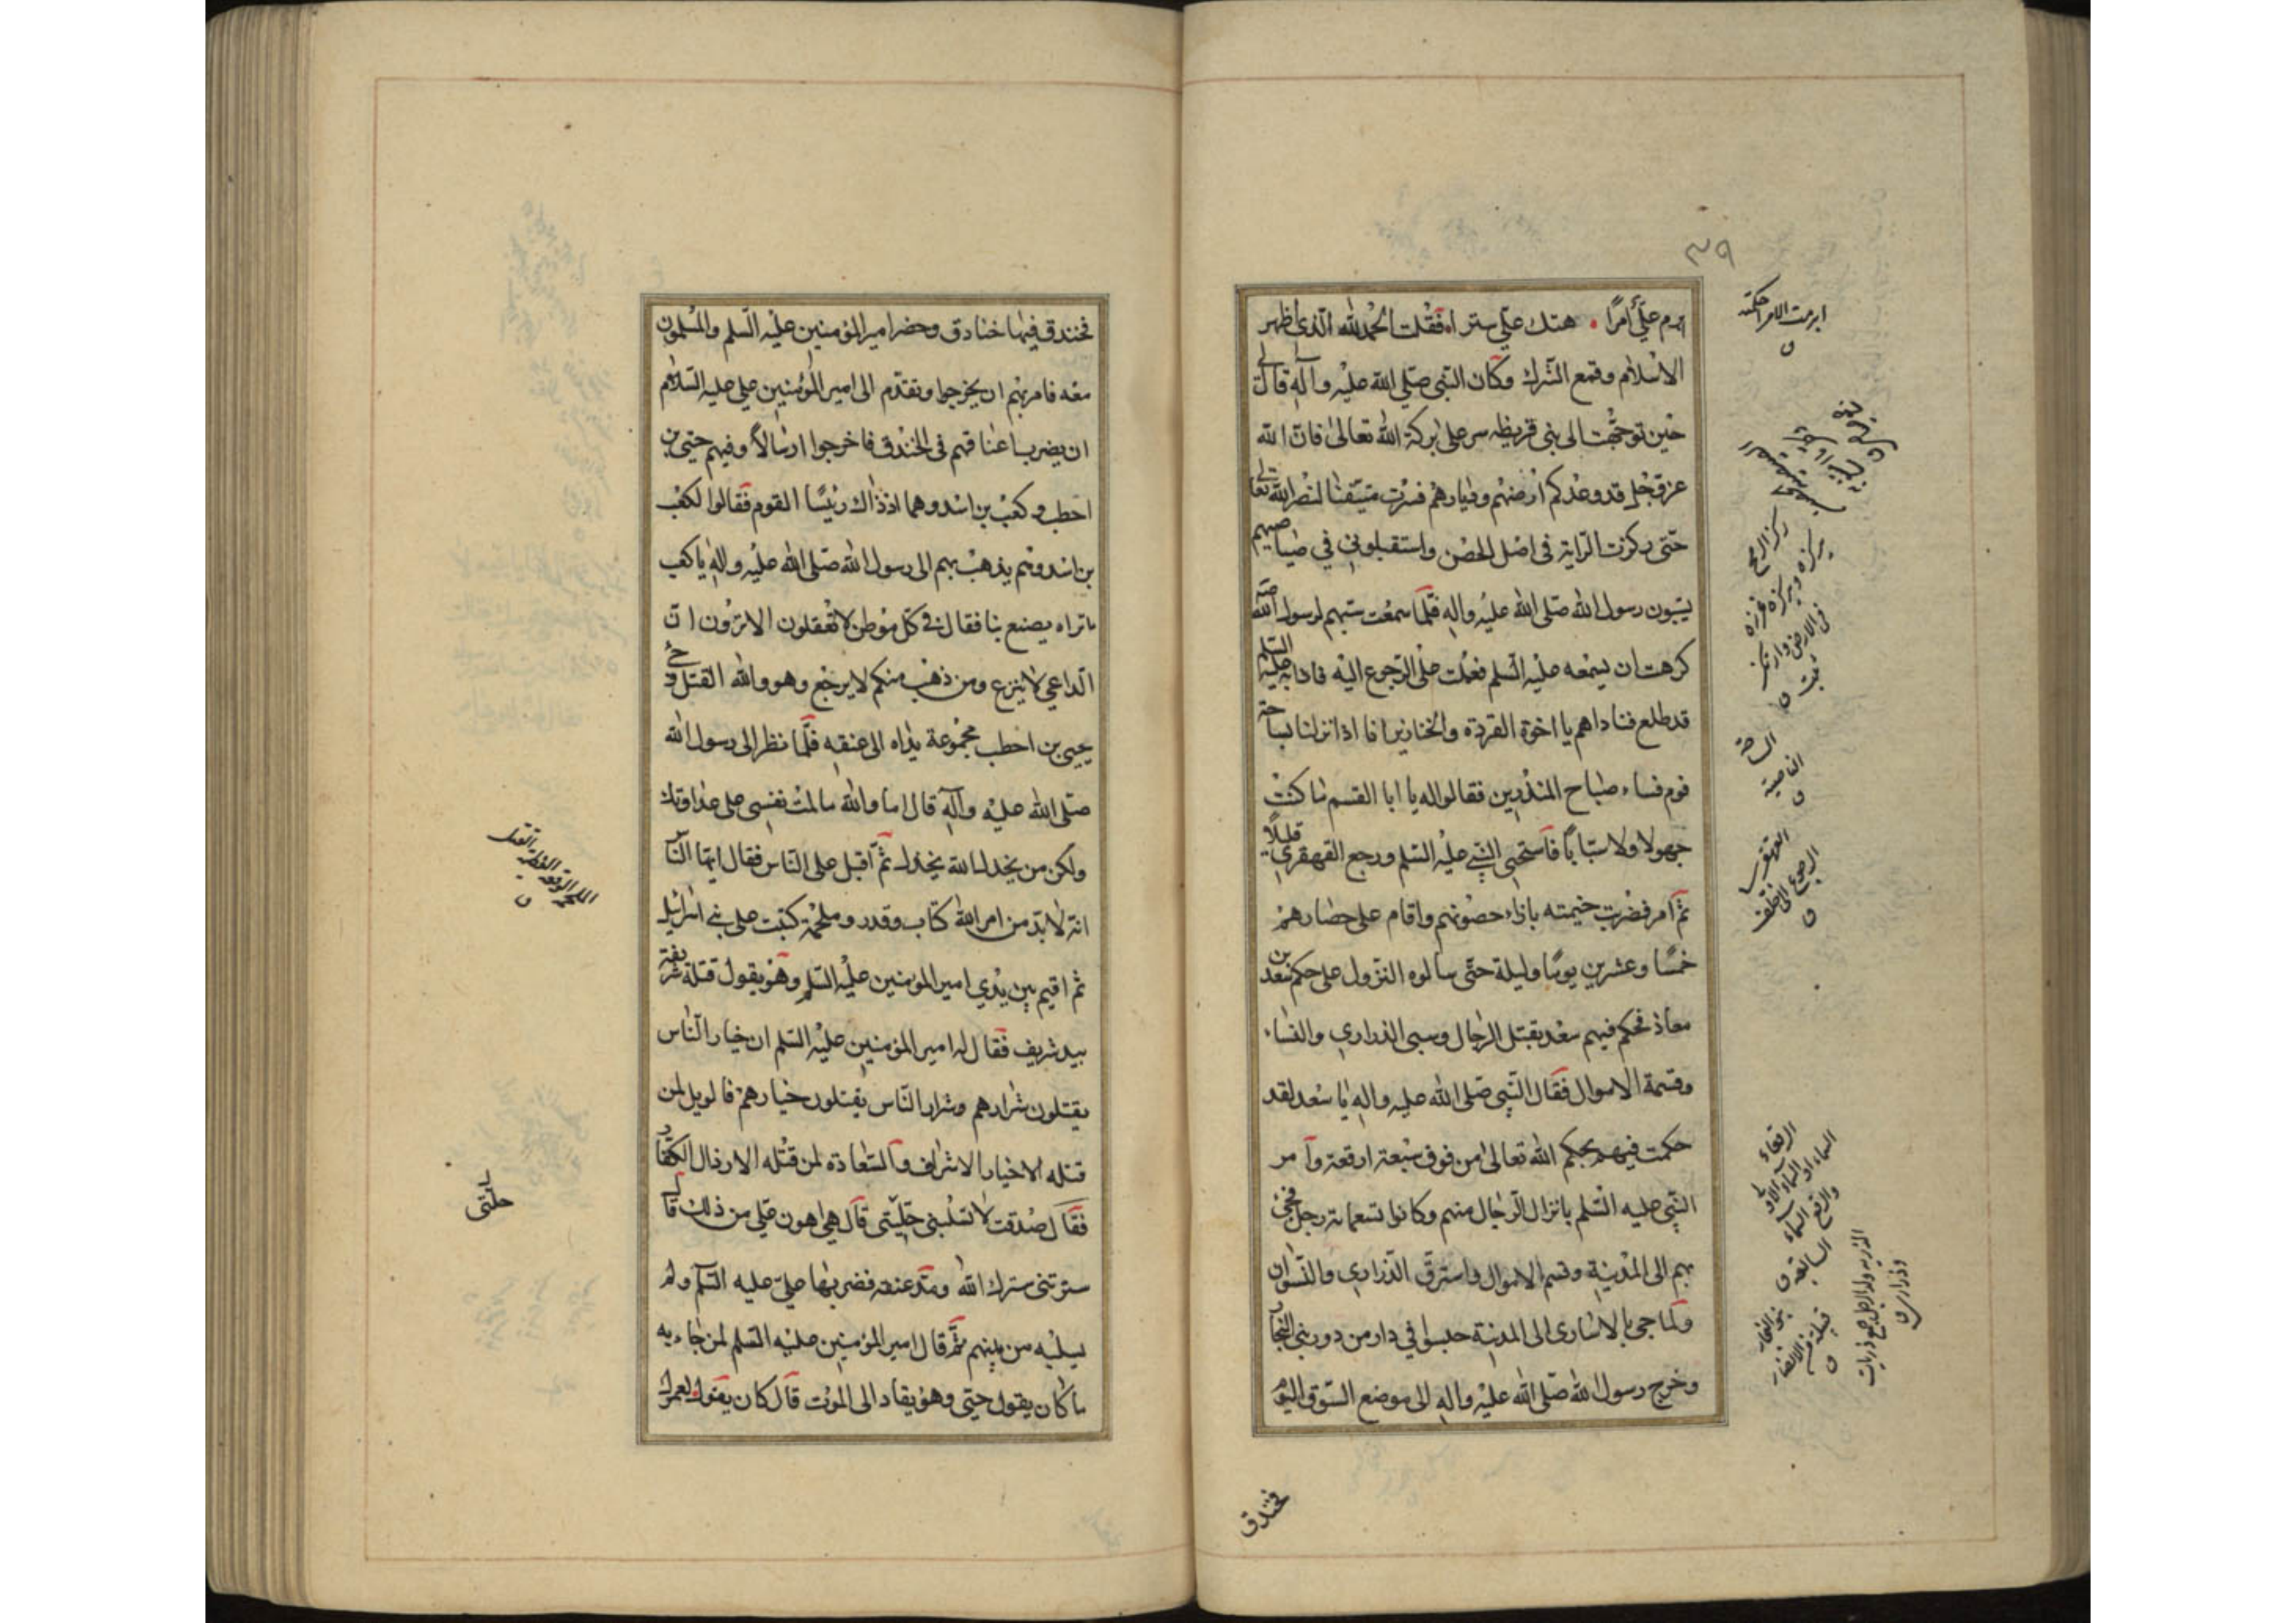 ٣٩
ابرم عليّ أمرًا . هتك عليّ سترا، فقلت الحمد لله الّذي اظهر
الاسلام وقمع الشرك وكان النّبي صلّى الله عليْه وآله قال لي
حين توجّهت الى بني قريظه سر على بركة الله تعالى فانّ الله
عزّ وجل قد وعدكم ارضهم وديارهم فسرْت متيقّنا لنصْر الله تعالى
حتّى ركزت الرّاية في اصْل الحصْن واستقبلوني في صياصيهم
يسبّون رسول الله صلّى الله عليْه واله فلمّا سمعْت سبّهم لرسول الله صلى الله
كرهت ان يسمعه عليْه السّلم فعملت على الرّجوع اليْه فاذا به عليْه السّلم
قد طلع فناداهم يا اخوة القردة والخنازير انا اذا نزلنا بساحة
قوم فساء صباح المنذرين فقالوا له يا ابا القسم ما كنْت
جهولا ولا سبّابًا فاستحيى النّبي عليْه السّلم ورجع القهقرى قليلًا
ثمّ امر فضربت خيمته بازاء حصونهم واقام على حصارهمْ
خمسًا وعشرين يومًا وليلة حتّى سالوه النزول على حكم سعد بن
معاذ فحكم فيهم سعْد بقتل الرّجال وسبي الذراري والنساء
وقسمة الاموال فقال النّبي صلّى الله عليه واله يا سعْد لقد
حكمت فيهم بحكم الله تعالى من فوق سبْعة ارقعة وآمر
النّبي عليه السّلم بانزال الرّجال منهم وكانوا تسعماية رجل فجئ
بهم الى المدْينة وقسم الاموال واسترقّ الذراري والنّسوان
ولمّا جئ بالاسارى الى المدينة حبسوا في دار من دور بني النجار
وخرج رسول الله صلّى الله عليْه واله الى موضع السّوق اليوم
ابرمت الامر احكمته
ركز الرمح
يركزه ويركزه غرزه
في الارض وارتكز
ثبت
الساحة
الناحية
القهقرى
الرجوع الى خلف
الرقعاء
السماء
السابعة
بنو النجار
قبيلة من الانصار
الذرية ولد الرجل ج ذريات
وذراري
فخندق
فخندق فيها خنادق وحضر امير المؤمنين عليْه السّلم والمسْلمون
معه فامر بهم ان يخرجوا وتقدّم الى امير المؤمنين علي عليه السّلام
ان يضرب اعناقهم في الخندق فاخرجوا ارسالاً وفيهم حيّي بن
اخطب وكعب بن اسد وهما اذ ذاك رئيسا القوم فقالوا لكعْب
بن اسد وهم يذهب بهم الى رسول الله صلّى الله عليْه واله يا كعب
ما تراه يصنع بنا فقال في كلّ موْطن لا تعْقلون الا ترْون انّ
الدّاعي لا ينزع ومن ذهب منكم لا يرجع وهو والله القتل وجئ
بحيي بن اخطب مجْموعة يداه الى عنقه فلمّا نظر الى رسول الله
صلّى الله عليْه وآله قال اما والله ما لمْت نفسي على عداوتك
ولكن من يخذل الله يخذل ثمّ اقبل على النّاس فقال ايّها النّاس
انّه لا بدّ من امر الله كتاب وقدر وملحمْة كتبت على بني اسرائيل
ثم اقيم بين يدْي امير المؤمنين عليْه السّلم وهوْ يقول قتلة شريفة
بيد شريف فقال له امير المؤمنين عليْه السّلم ان خيار النّاس
يقتلون شرارهم وشرار النّاس يقتلون خيارهمْ فالويل لمن
قتله الاخيار الاشراف والسّعادة لمن قتْله الارذال الكفّار
فقال صدْقت لا تسْلبني حلّتي قال هي اهون عليّ من ذلك قال
سترتني سترك الله ومدّ عنقه فضربها علي عليه السّلم ولم
يسلبْه من بينهم ثمّ قال امير المؤمنين عليْه السّلم لمن جاء به
ما كان يقول حيّي وهوْ يقاد الى الموْت قال كان يقول لعمرك
الملحمة الوقعة العظيمة القتل
حلّتي